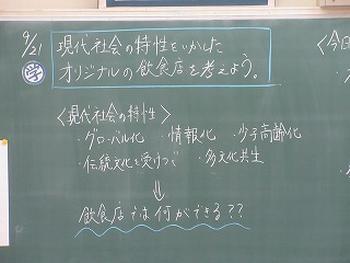 9/21
学
現代社会の特性をいかした
オリジナルの飲食店を考えよう。
<現代社会の特性>
・グローバル化 ・情報化 ・少子高齢化
・伝統文化を受けつぐ ・多文化共生
⇓
飲食店では何ができる??
<今日